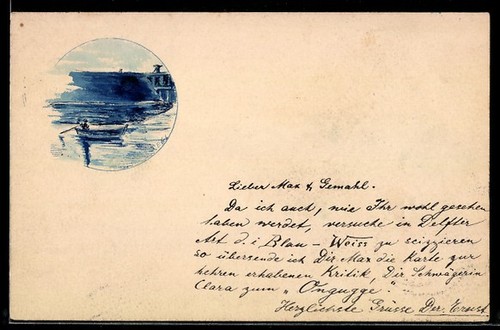 Lieber Max & Gemahl.
Da ich auch, wie Ihr wohl gesehen
haben werdet, versuche in Delfter
Art d. i Blau - Weiss zu scizzieren
so übersende ich Dir Max die Karte zur
hehren erhabenen Kritik, Die Schwägerin
Clara zum „Ongugge." -
Herzlichste Grüsse Der Ernst